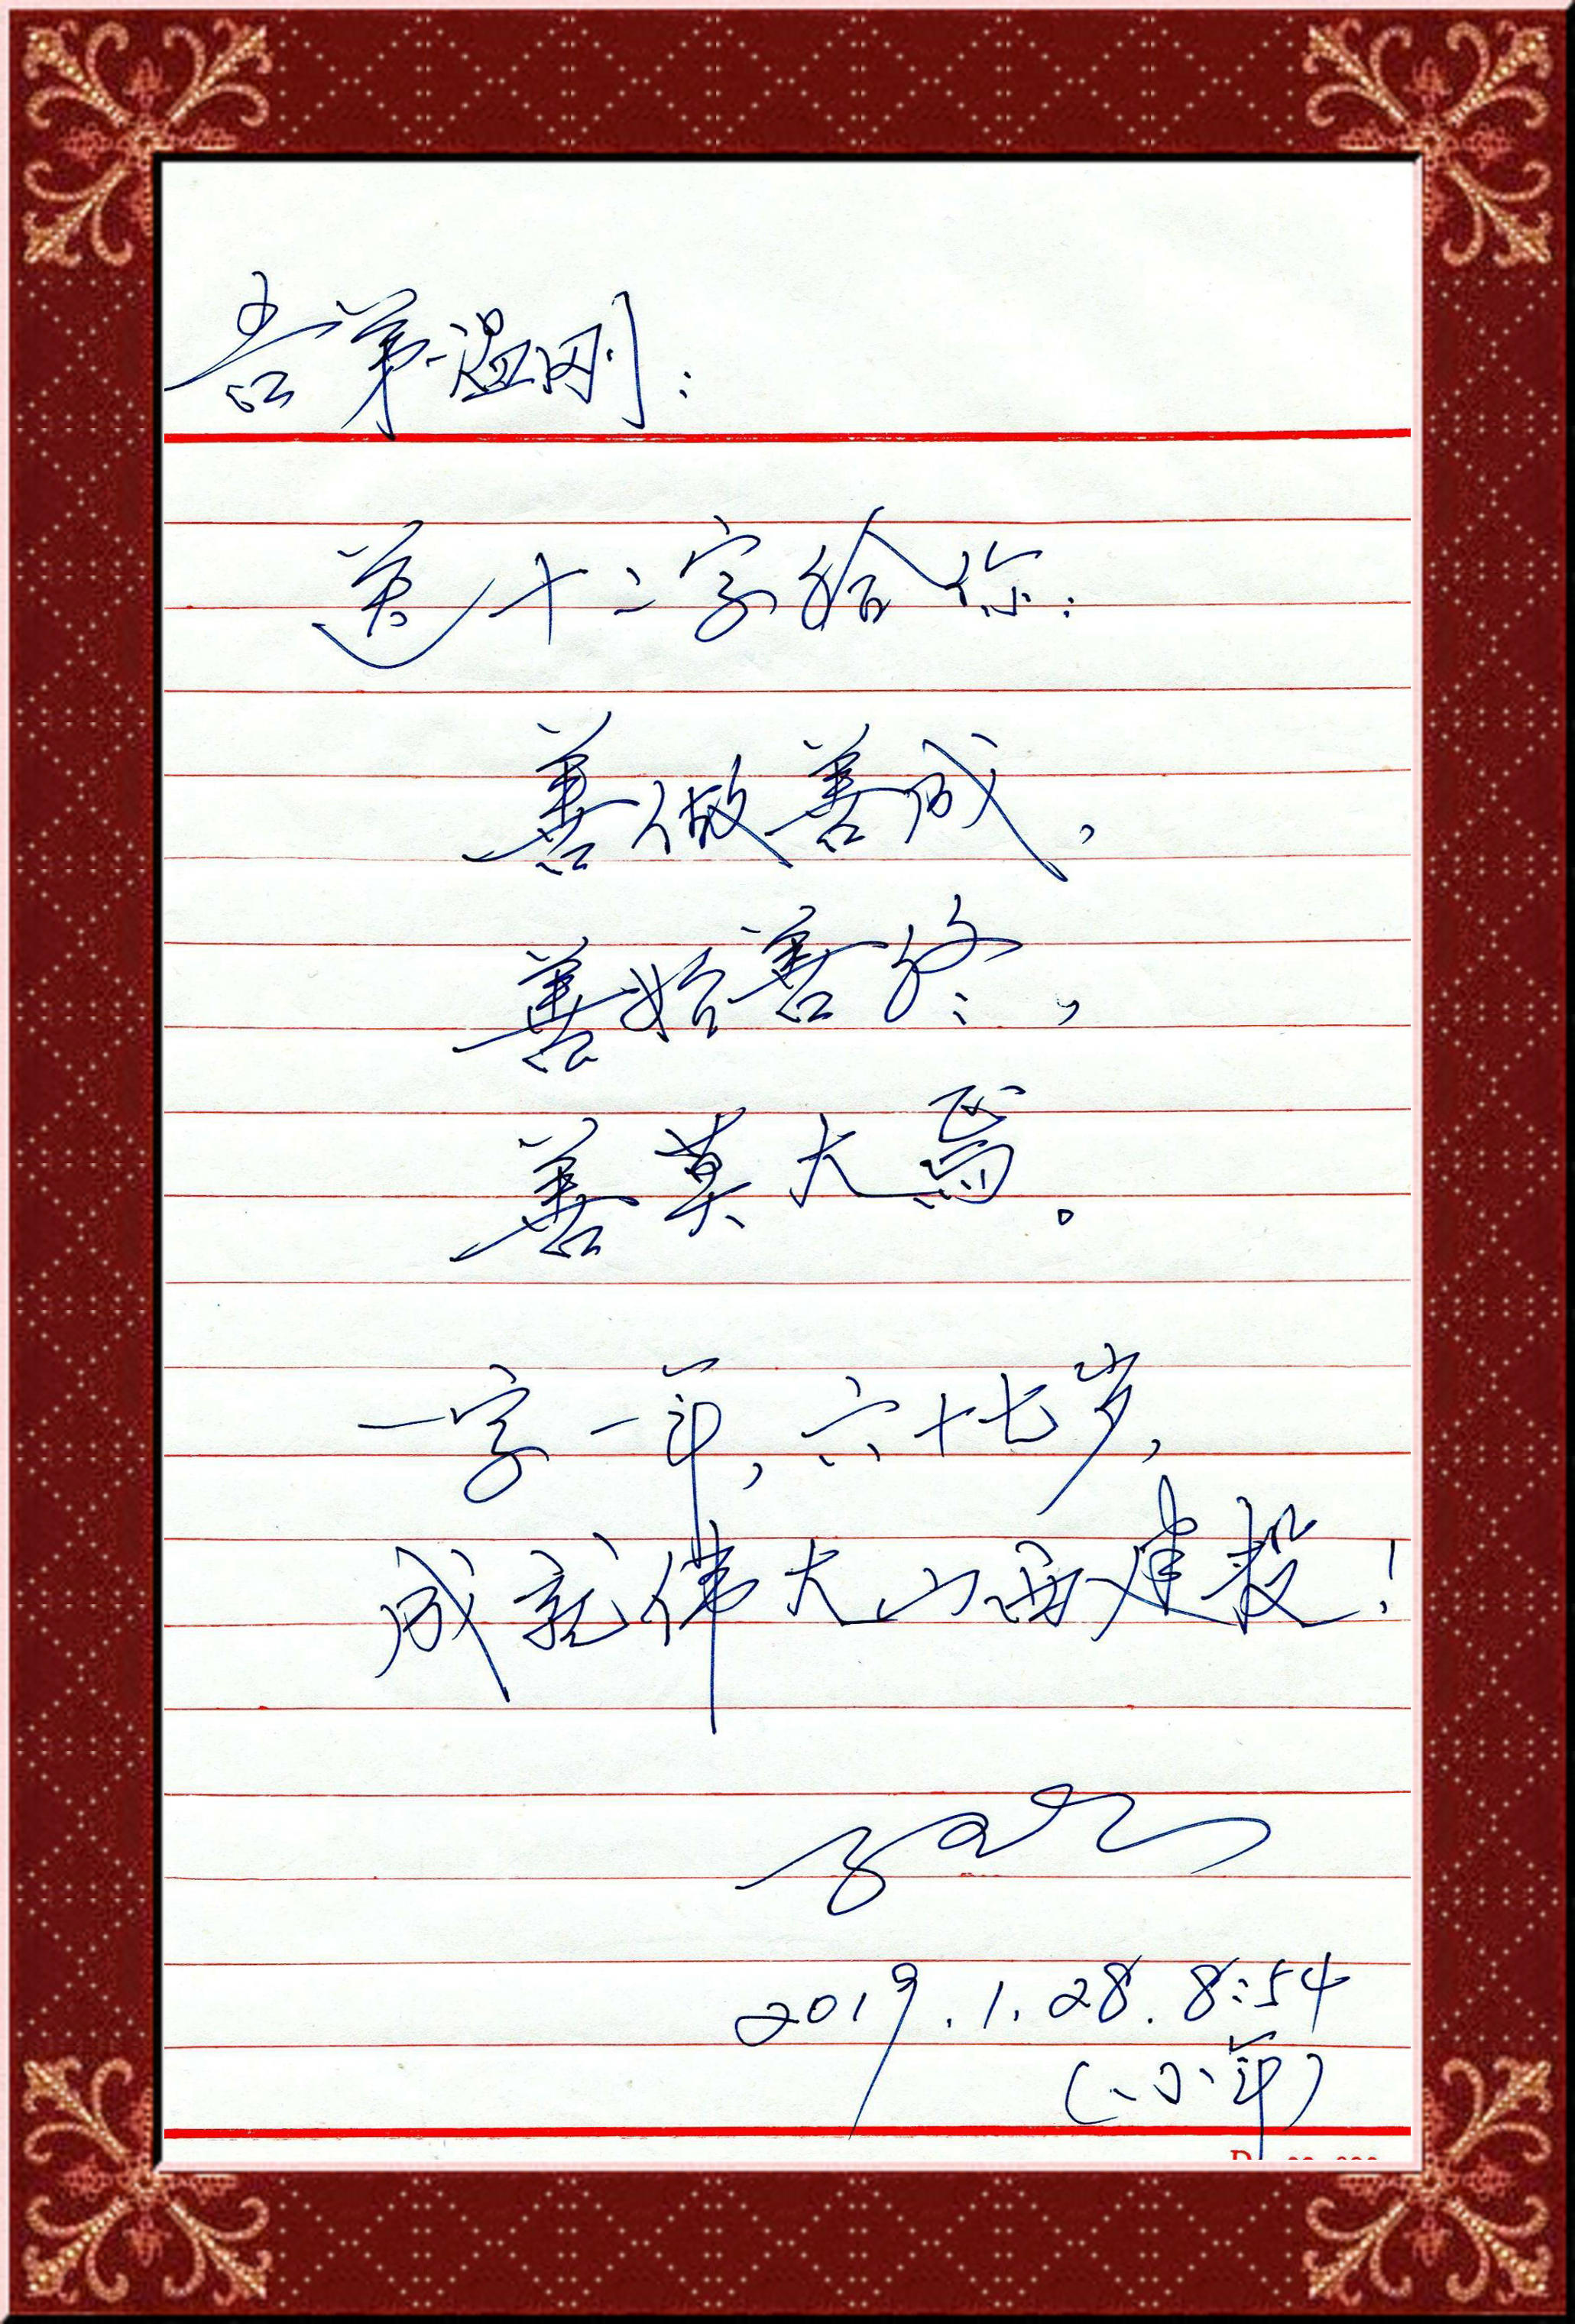 吾弟温刚：
送十二字给你：
善做善成，
善始善终，
善莫大焉。
一字一年，六十七岁，
成就伟大山西建投！
2019.1.28.8:54
（小年）